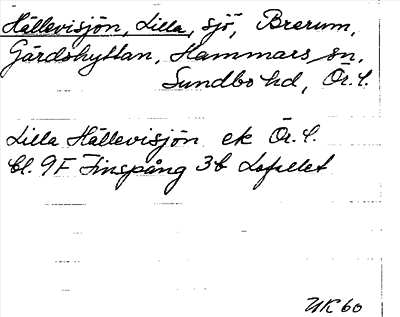 Hällevisjön, Lilla, sjö, Brerum,
Gärdshyttan, Hammars sn,
Sundbo hd, Ör. l.
Lilla Hällevisjön ek Ör. l.
bl. 9F Finspång 3b Lofallet
UK 60